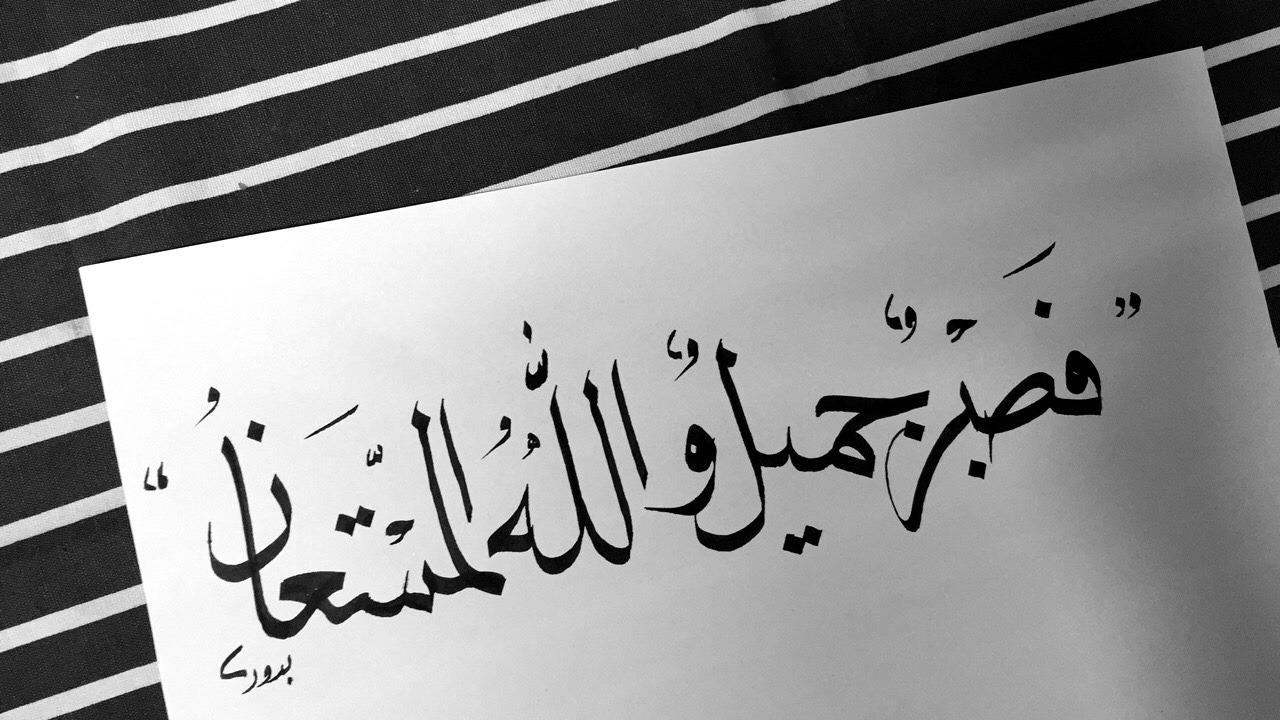 ”فَصَبْرٌ جميلٌ واللهُ المُستَّعَانُ“
بدوري